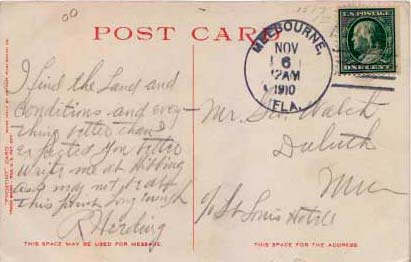 00
POST CARD
MELBOURNE,
NOV
6
12AM
1910
FLA.
U.S. POSTAGE
ONE CENT
I find the Land and
Conditions and every
thing better than I
expected You better
Write me at Hibbing
as I may not be at
this point Long enough
R Harding
Mr. Walch
Duluth
Minn
c/o St Louis Hotell
THIS SPACE MAY BE USED FOR MESSAGE.
THIS SPACE IS FOR THE ADDRESS.